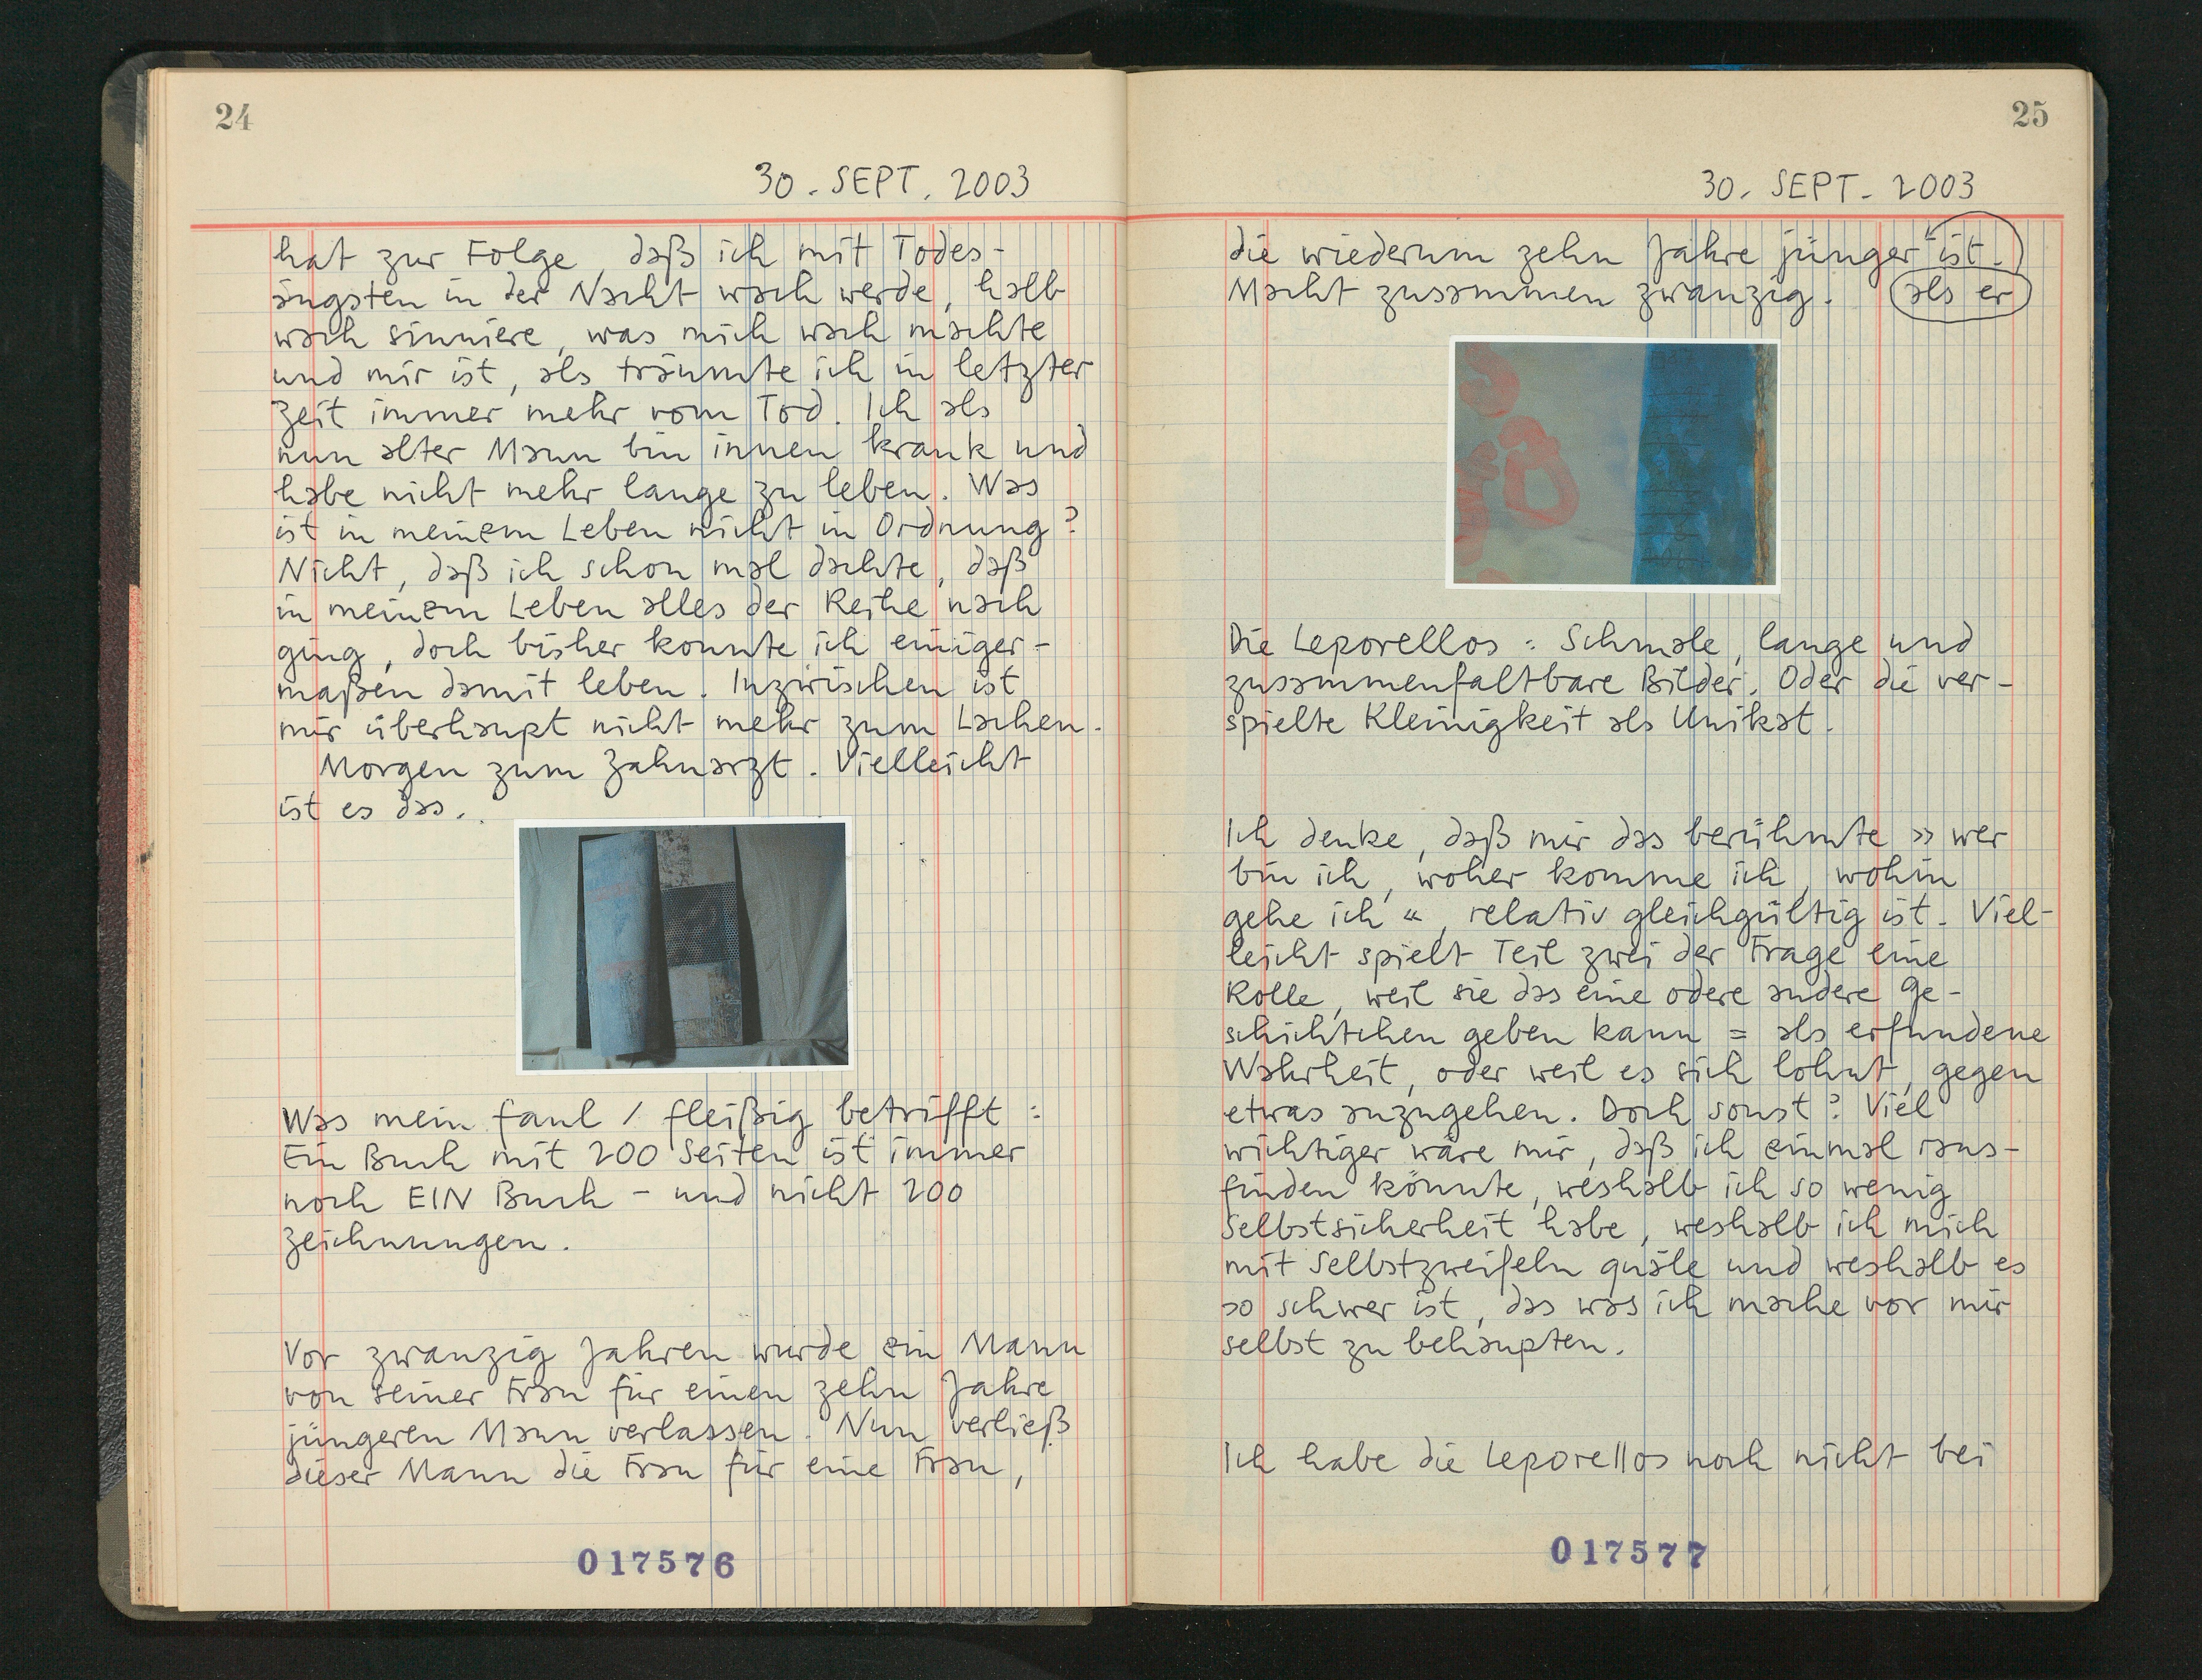 24
30. SEPT. 2003
hat zur Folge, daß ich mit Todes-
ängsten in der Nacht wach werde, halb
wach sinniere, was mich wach machte
und mir ist, als träumte ich in letzter
Zeit immer mehr vom Tod. Ich als
nun alter Mann bin innen krank und
habe nicht mehr lange zu leben. Was
ist in meinem Leben nicht in Ordnung?
Nicht, daß ich schon mal dachte, daß
in meinem Leben alles der Reihe nach
ging, doch bisher konnte ich einiger-
maßen damit leben. Inzwischen ist
mir überhaupt nicht mehr zum Lachen.
Morgen zum Zahnarzt. Vielleicht
ist es das..
Was mein faul / fleißig betrifft:
Ein Buch mit 200 Seiten ist immer
noch EIN Buch – und nicht 200
Zeichnungen.
Vor zwanzig Jahren wurde ein Mann
von seiner Frau für einen zehn Jahre
jüngeren Mann verlassen. Nun verließ
dieser Mann die Frau für eine Frau,
017576
25
30. SEPT. 2003
die wiederum zehn Jahre jünger ist.
Macht zusammen zwanzig. als er
Die Leporellos: Schmale, lange und
zusammenfaltbare Bilder. Oder die ver-
spielte Kleinigkeit als Unikat.
Ich denke, daß mir das berühmte »wer
bin ich, woher komme ich, wohin
gehe ich«, relativ gleichgültig ist. Viel-
leicht spielt Teil zwei der Frage eine
Rolle, weil sie das eine odere andere Ge-
schichtchen geben kann = als erfundene
Wahrheit, oder weil es sich lohnt, gegen
etwas anzugehen. Doch sonst? Viel
wichtiger wäre mir, daß ich einmal raus-
finden könnte, weshalb ich so wenig
Selbstsicherheit habe, weshalb ich mich
mit Selbstzweifeln quäle und weshalb es
so schwer ist, das was ich mache vor mir
selbst zu behaupten.
Ich habe die Leporellos noch nicht bei
017577